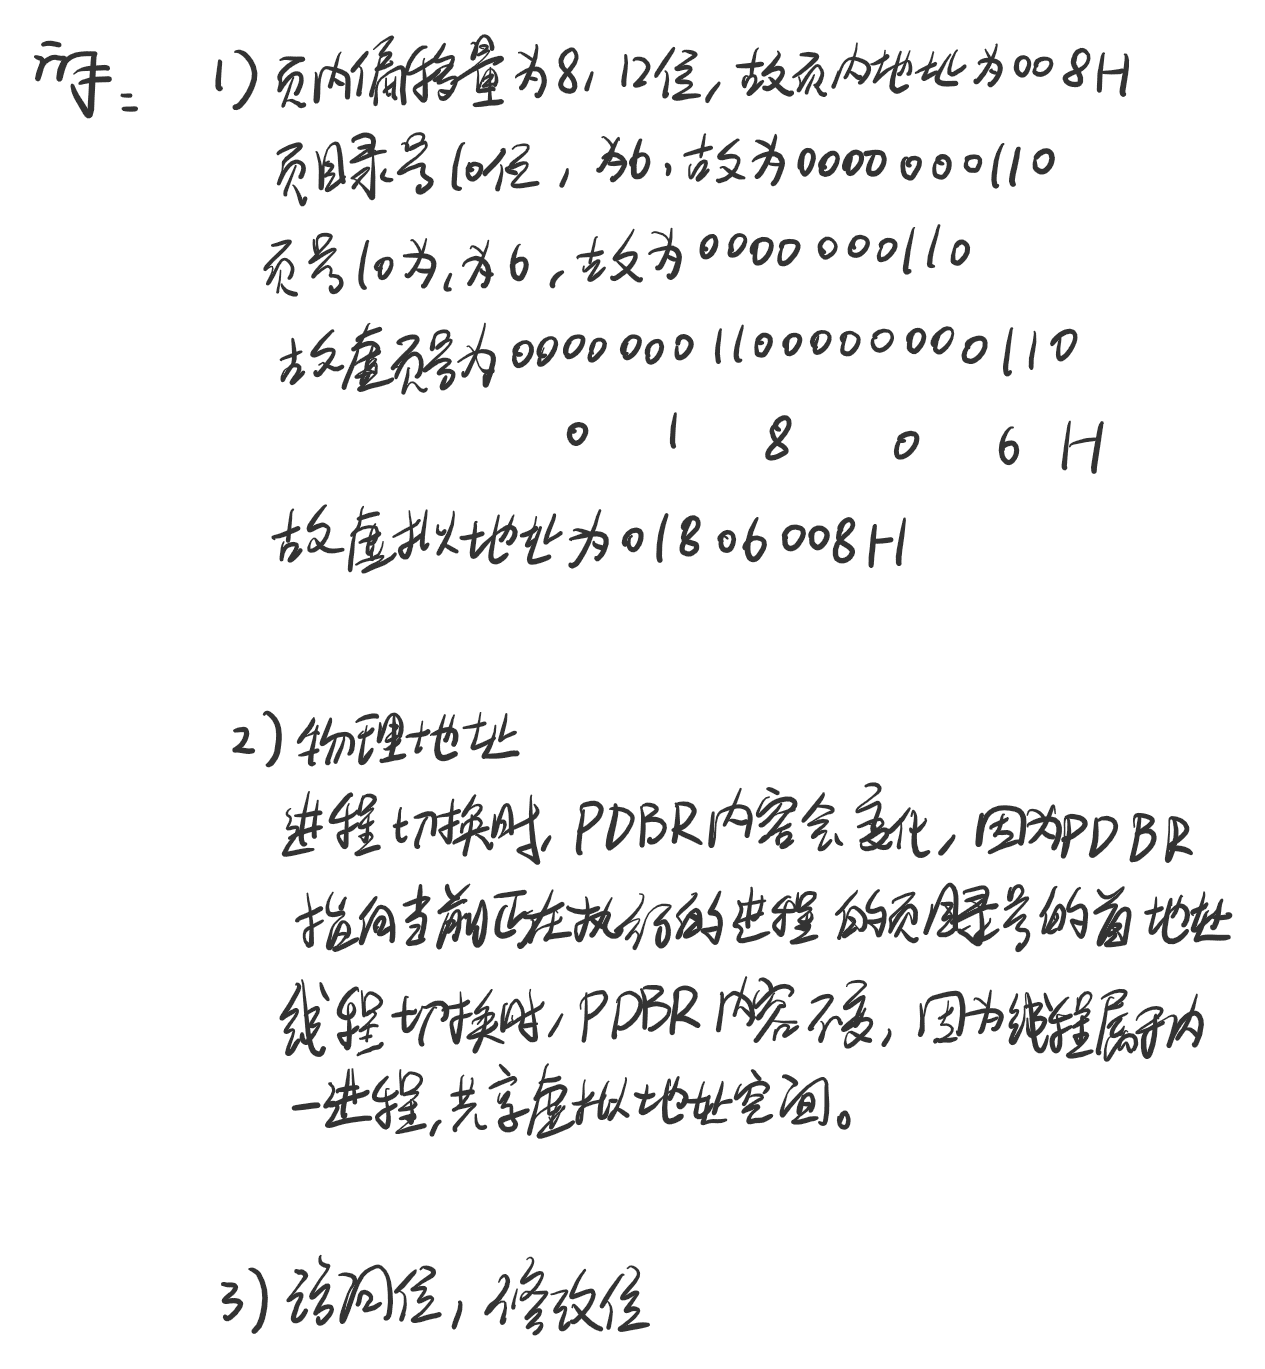 解: 1) 页内偏移量为8, 12位, 故页内地址为008H
页目录号10位, 为6, 故为0000000110
页号10为, 为6, 故为0000000110
故虚页号为00000001100000000110
0 1 8 0 6 H
故虚拟地址为01806008H
2) 物理地址
进程切换时, PDBR内容会变化, 因为PDBR
指向当前正在执行的进程的页目录号的首地址
线程切换时, PDBR内容不变, 因为线程属于内
一进程, 共享虚拟地址空间。
3) 访问位, 修改位